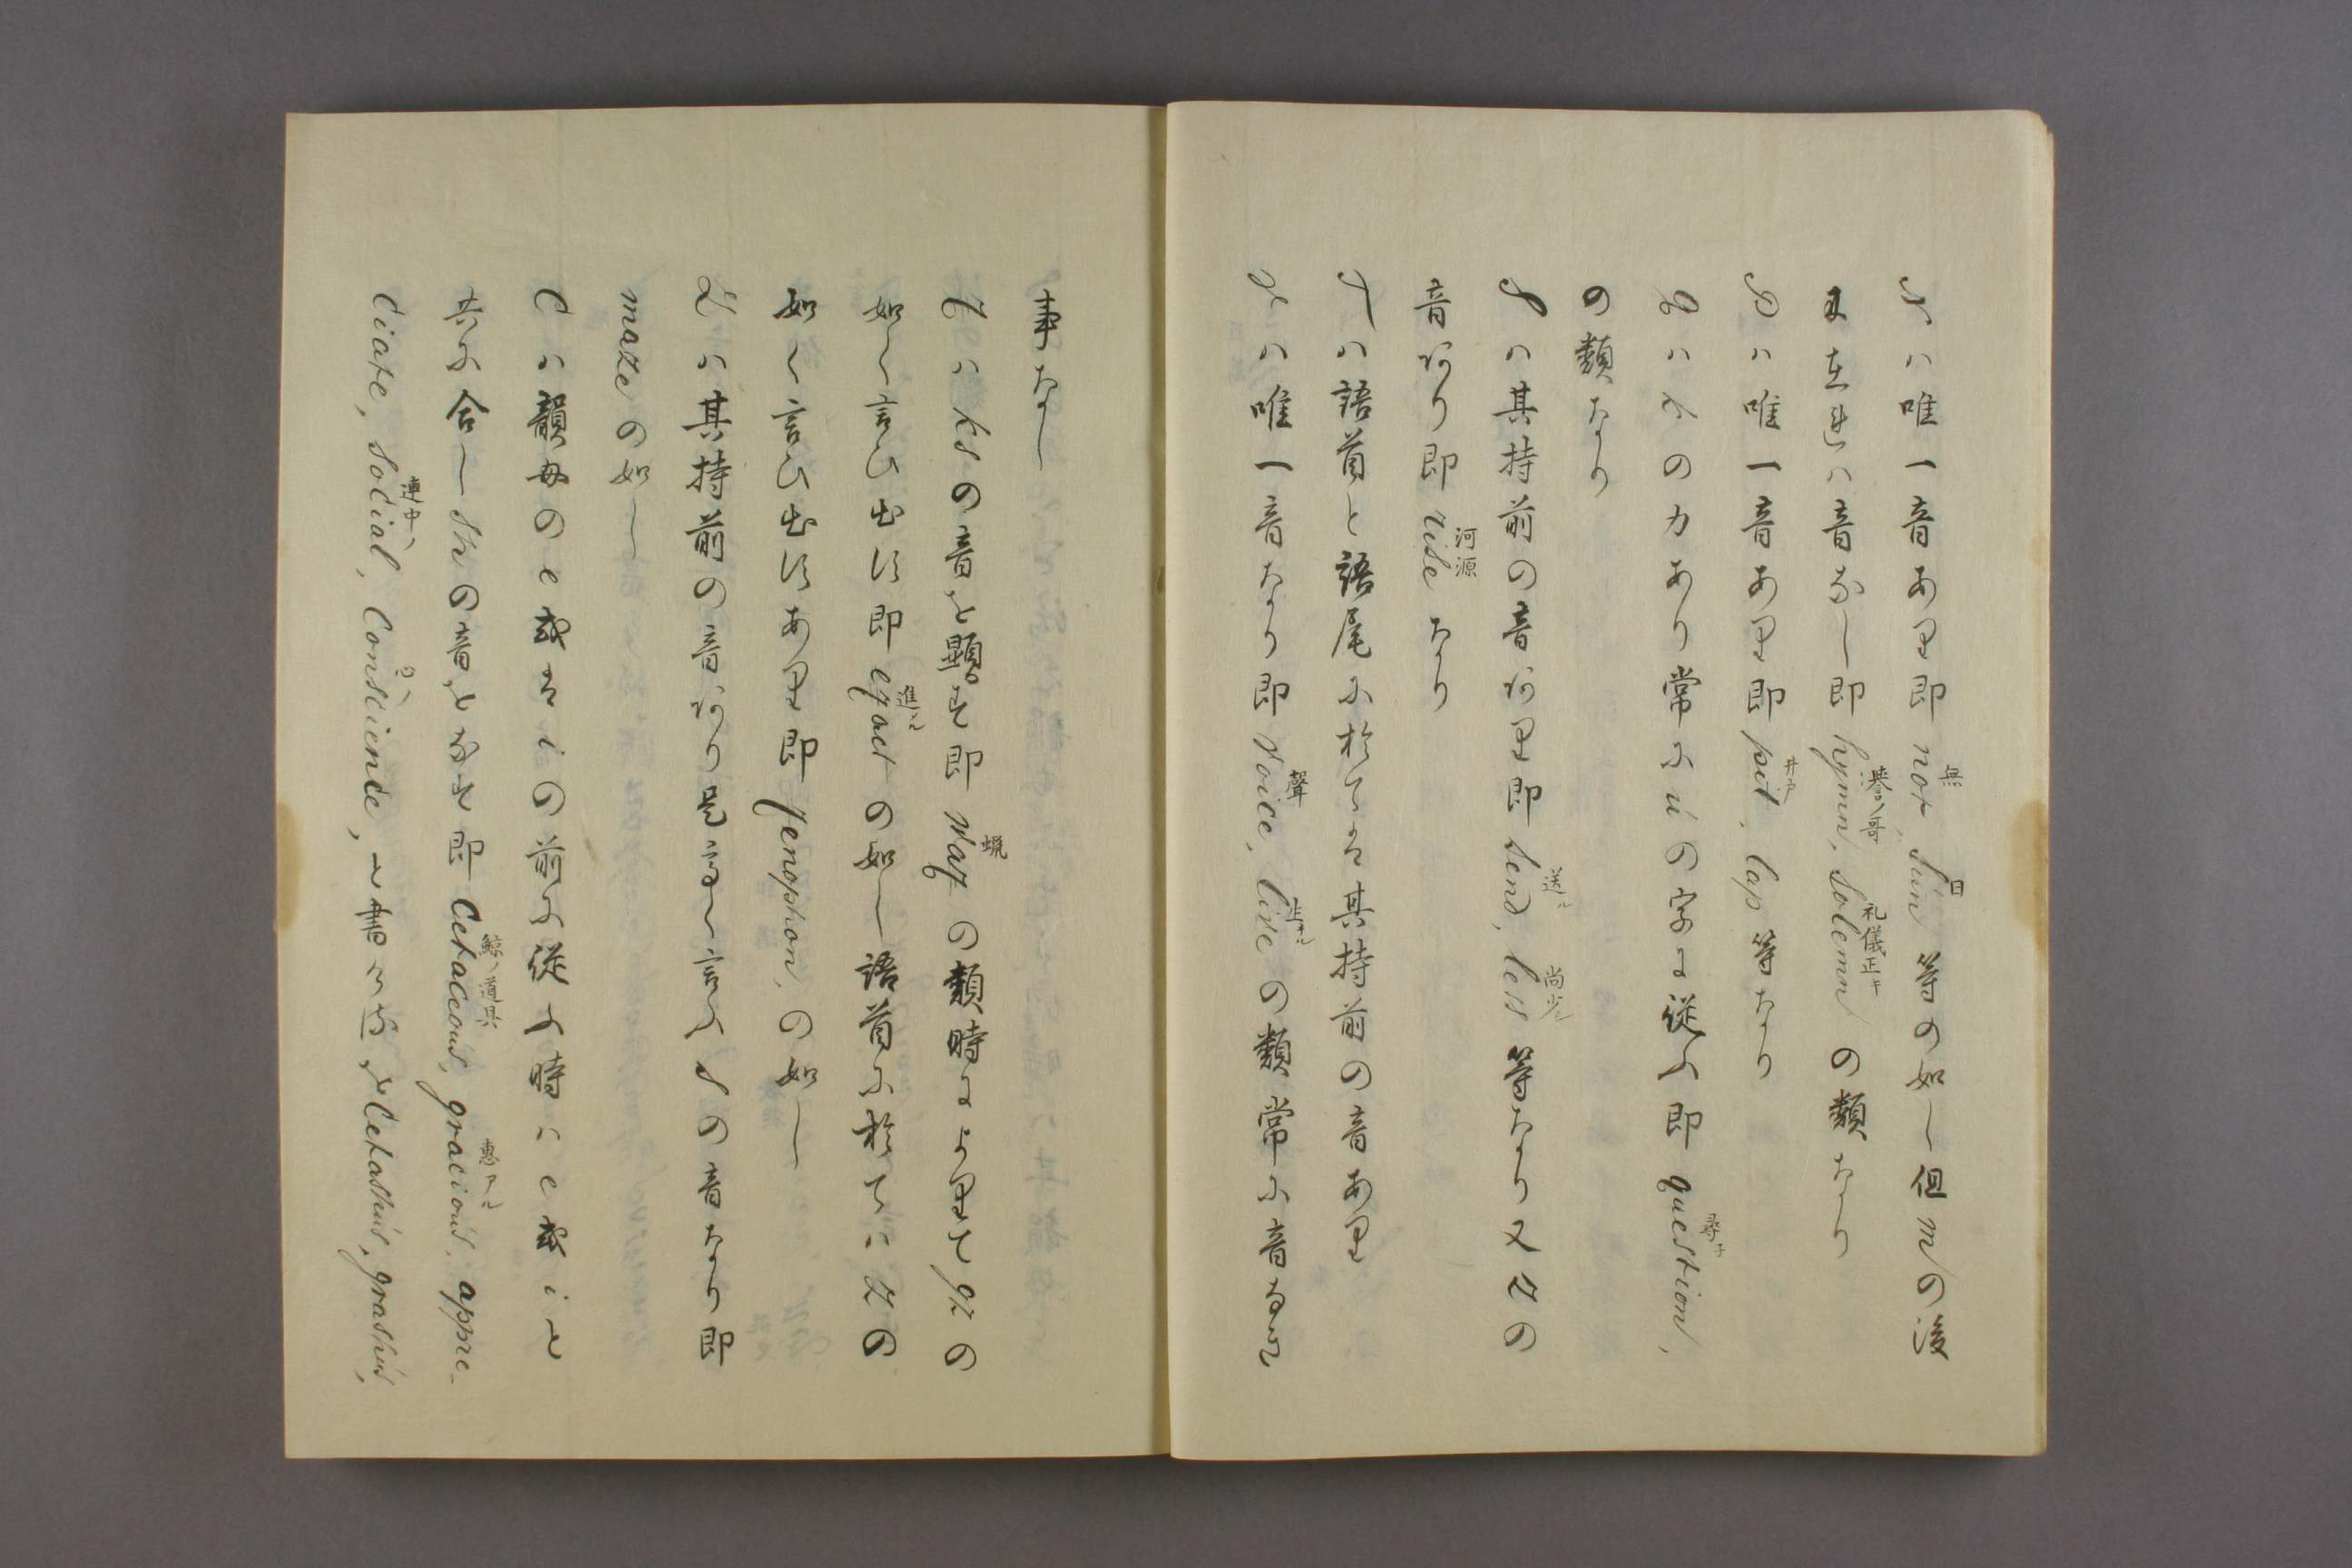 nハ唯一音あり即not無,sun日等の如し但mの後
に在れハ音なし即hymn誉ノ哥,solemn礼儀正キの類なり
pハ唯一音あり即pit井戸,lap等なり
qハkの力あり常にuの字に従ふ即question尋子,
の類なり
sハ其持前の音あり即send送ル,less尚少シ等なり又zの
音あり即rise河源なり
tハ語首と語尾に於てハ其持前の音あり
vハ唯一音なり即voice聲,live生キルの類常に音なき
事なし
xハksの音を顕す即wax蝋の類時によりてgzの
如く言ひ出す即exact進ムルの如し語首に於てハzの
如く言ひ出すあり即xenophon,の如し
zハ其持前の音あり是高く言ふsの音なり即
mazeの如し
cハ韻母のe或はiの前に従ふ時ハe或iと
共に合しshの音をなす即cetaceous鯨ノ道具,gracious恵アル,appre-
ciate,social連中ノ,conscience,書cetashus,grashus,